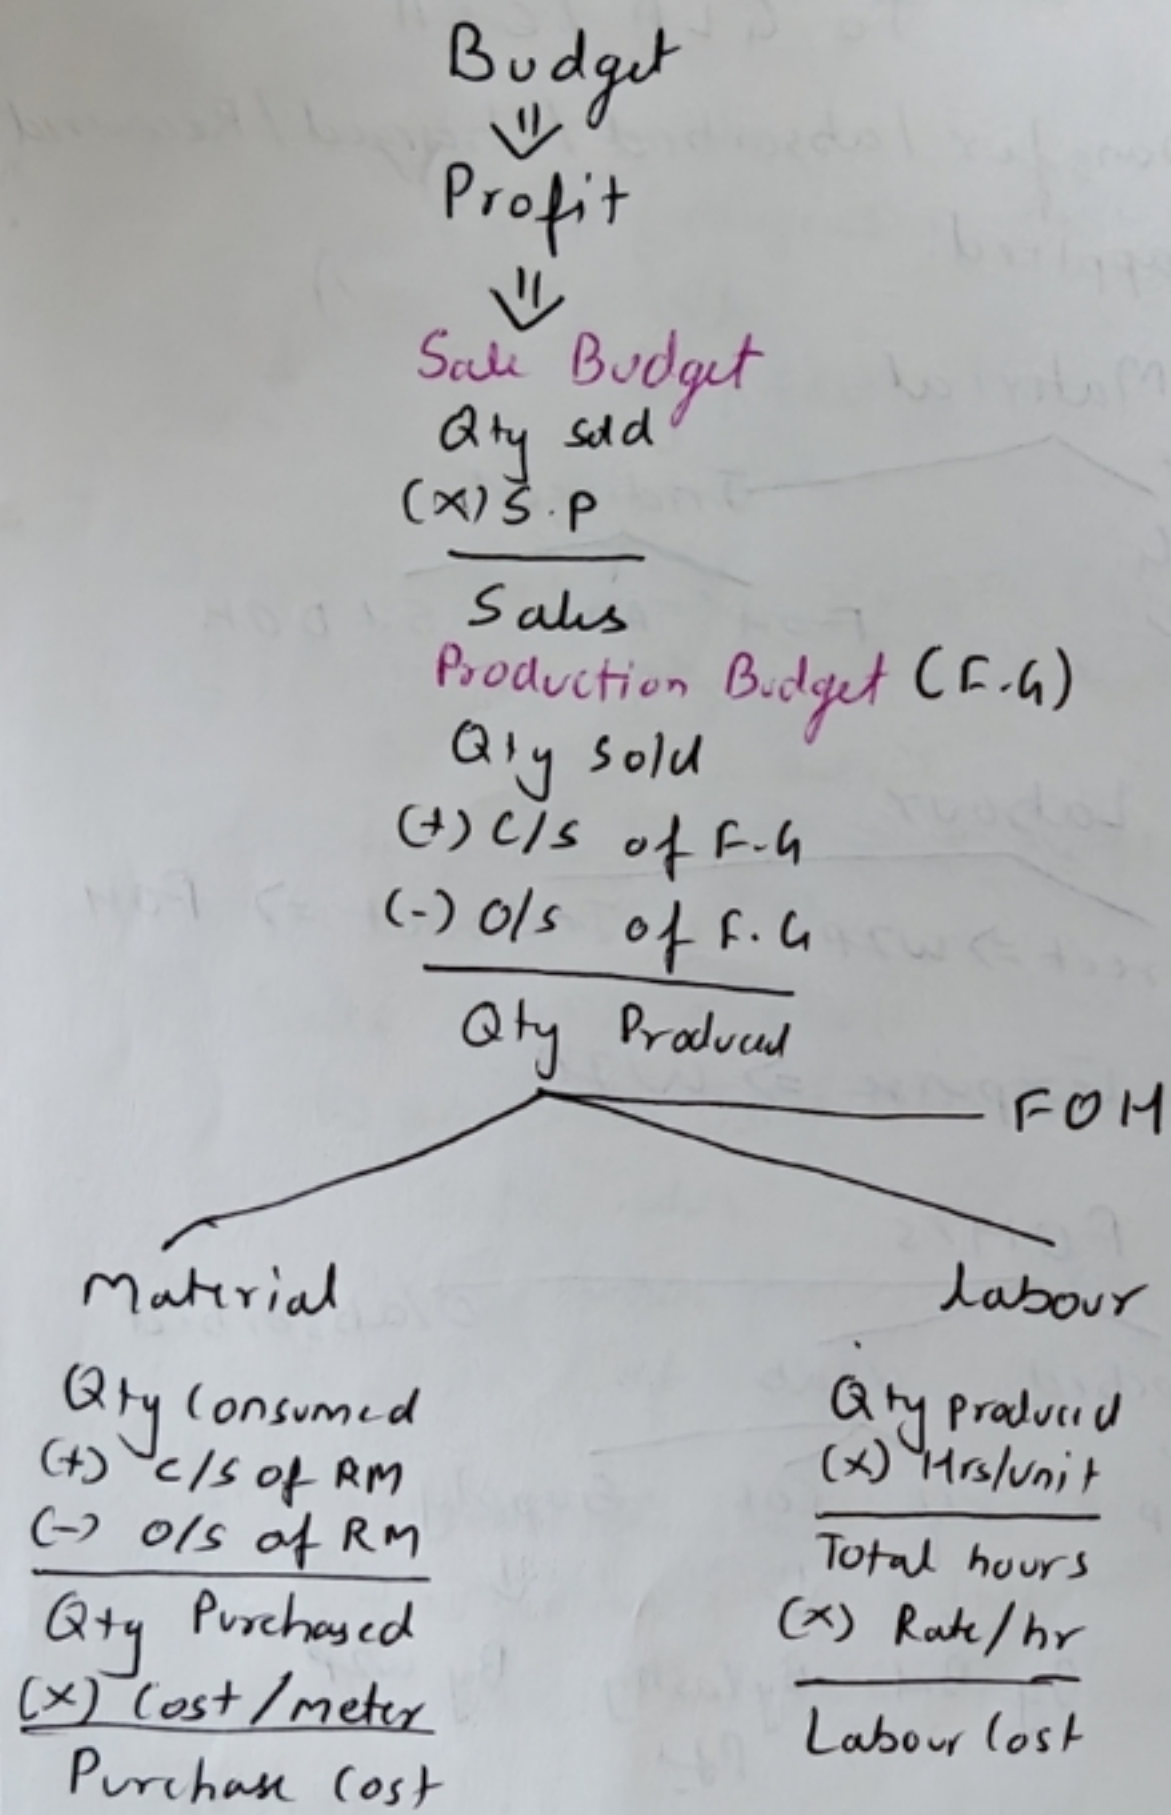 Budget
Profit
Sale Budget
Qty sold
(x) S.P
Sales
Production Budget (F.G)
Qty sold
(+) C/S of F.G
(-) O/S of F.G
Qty Produced
FOH
Material
Labour
Qty Consumed
(+) C/S of RM
(-) O/S of RM
Qty Purchased
(x) Cost/meter
Purchase Cost
Qty produced
(x) Hrs/unit
Total hours
(x) Rate/hr
Labour Cost